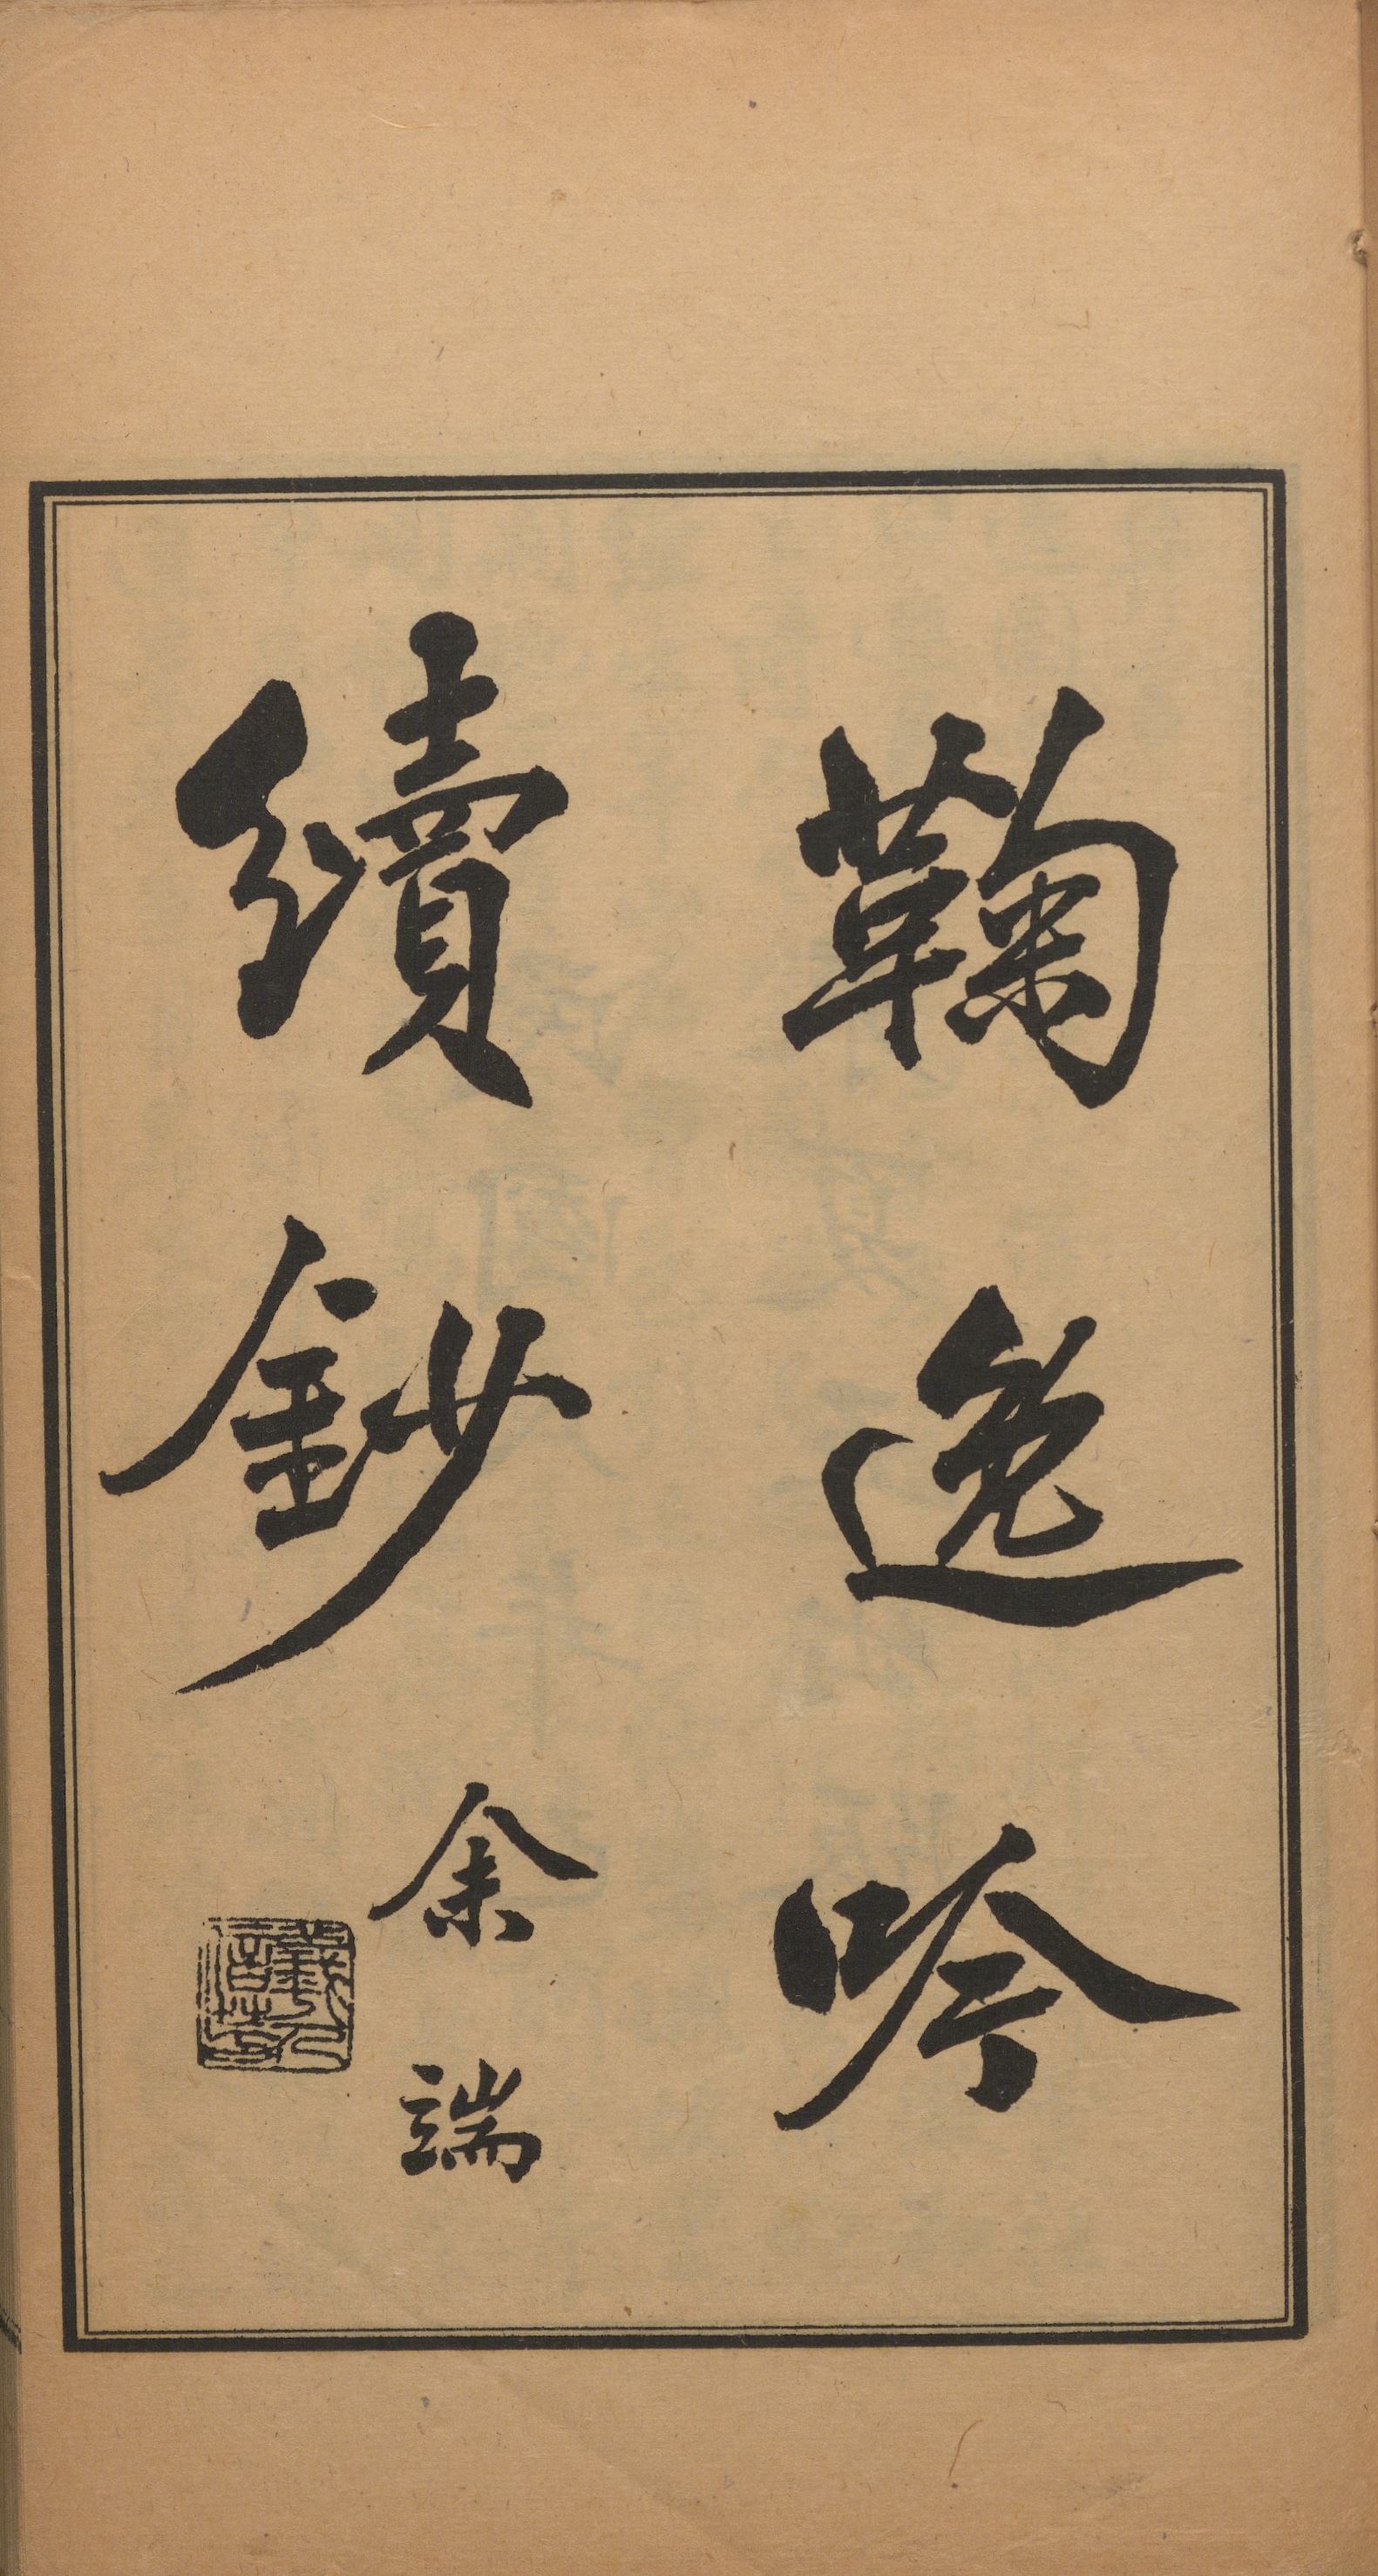 鞠逸吟
續鈔
余端